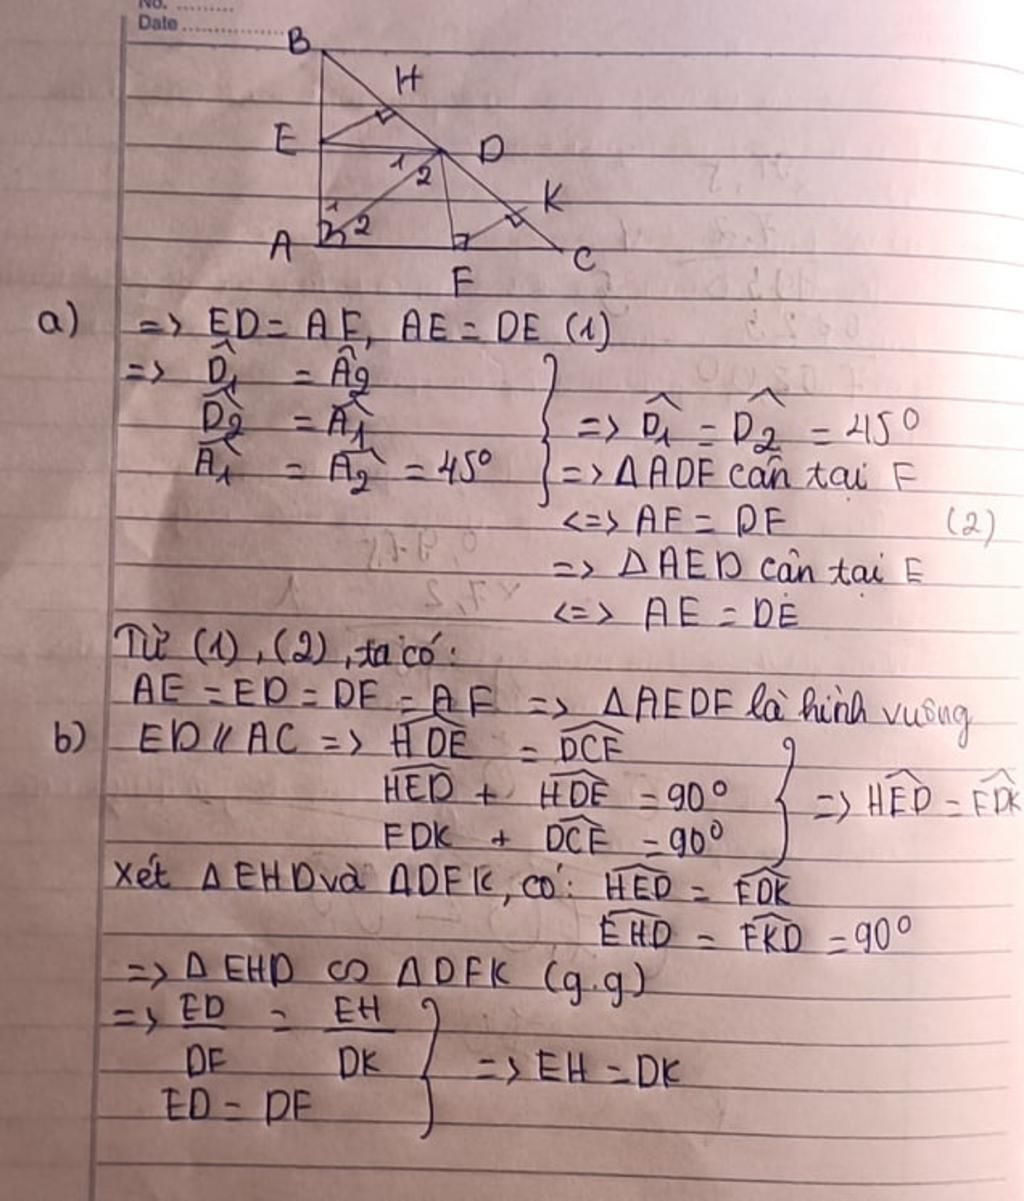 No. .........
Date ...............
B
H
E
D
1 2
K
1
A 2
F
C
a) => ED = AF, AE = DF (1)
=> D̂₁ = Â₂
D̂₂ = Â₁ => D̂₁ = D̂₂ = 45°
Â₁ = Â₂ = 45° => ΔADF cân tại F
<=> AF = DF (2)
=> ΔAED cân tại E
<=> AE = DE
Từ (1), (2), ta có:
AE = ED = DF = AF => ΔAEDF là hình vuông
b) ED // AC => HDE = DCF
HED + HDE = 90° => HED = FDK
FDK + DCF = 90°
Xét ΔEHD và ΔDFK, có: HED = FDK
EHD = FKD = 90°
=> ΔEHD ∽ ΔDFK (g.g)
=> ED/DF = EH/DK => EH = DK
ED = DF